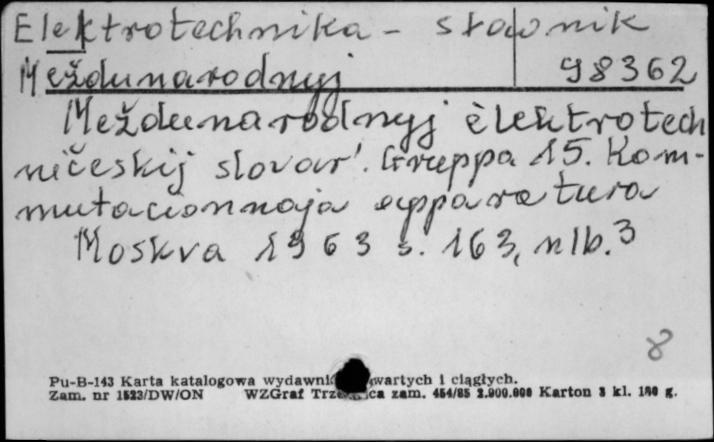 Elektrotechnika - słownik
Meždunarodnyj 98362
Meždunarodnyj èlektrotech
ničeskij slovar'. Gruppa 15. Kom-
mutacionnaja apparatura
Moskva 1963 s. 163, nlb. 3
8
Pu-B-143 Karta katalogowa wydawni wartych i ciągłych.
Zam. nr 1523/DW/ON WZGraf zam. 454/85 2.000.000 Karton 3 kl. g.